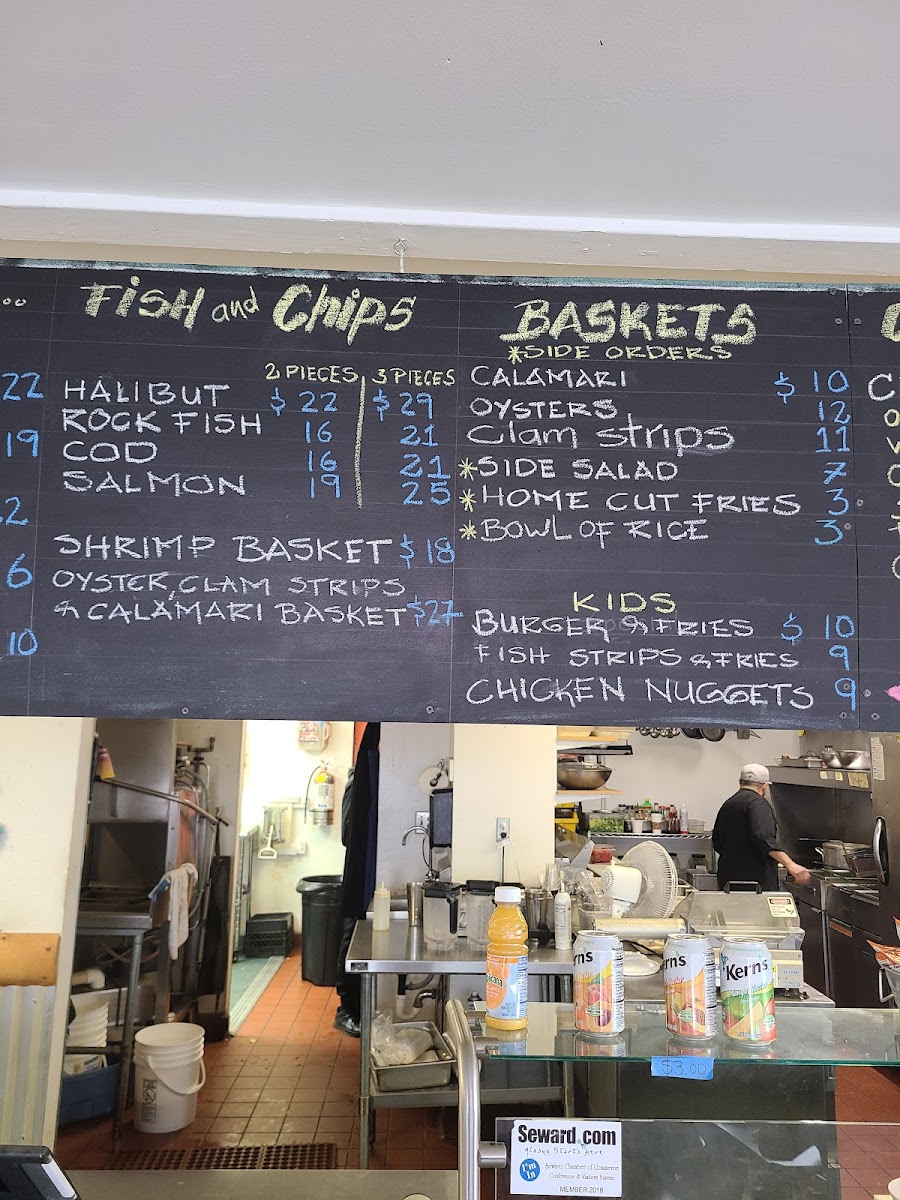 ..
22
19
2
6
10
FISH and Chips
2 PIECES 3 PIECES
HALIBUT $22 $29
ROCK FISH 16 21
COD 16 21
SALMON 19 25
SHRIMP BASKET $18
OYSTER, CLAM STRIPS
& CALAMARI BASKET $27
BASKETS
*SIDE ORDERS
CALAMARI $10
OYSTERS 12
Clam strips 11
*SIDE SALAD 7
*HOME CUT FRIES 3
*BOWL OF RICE 3
KIDS
BURGER & FRIES $10
FISH STRIPS & FRIES 9
CHICKEN NUGGETS 9
C
Kern's
$3.00
Seward.com
Alaska Starts Here
I'm In
Seward Chamber of Commerce
Conference & Visitors Bureau
MEMBER 2018